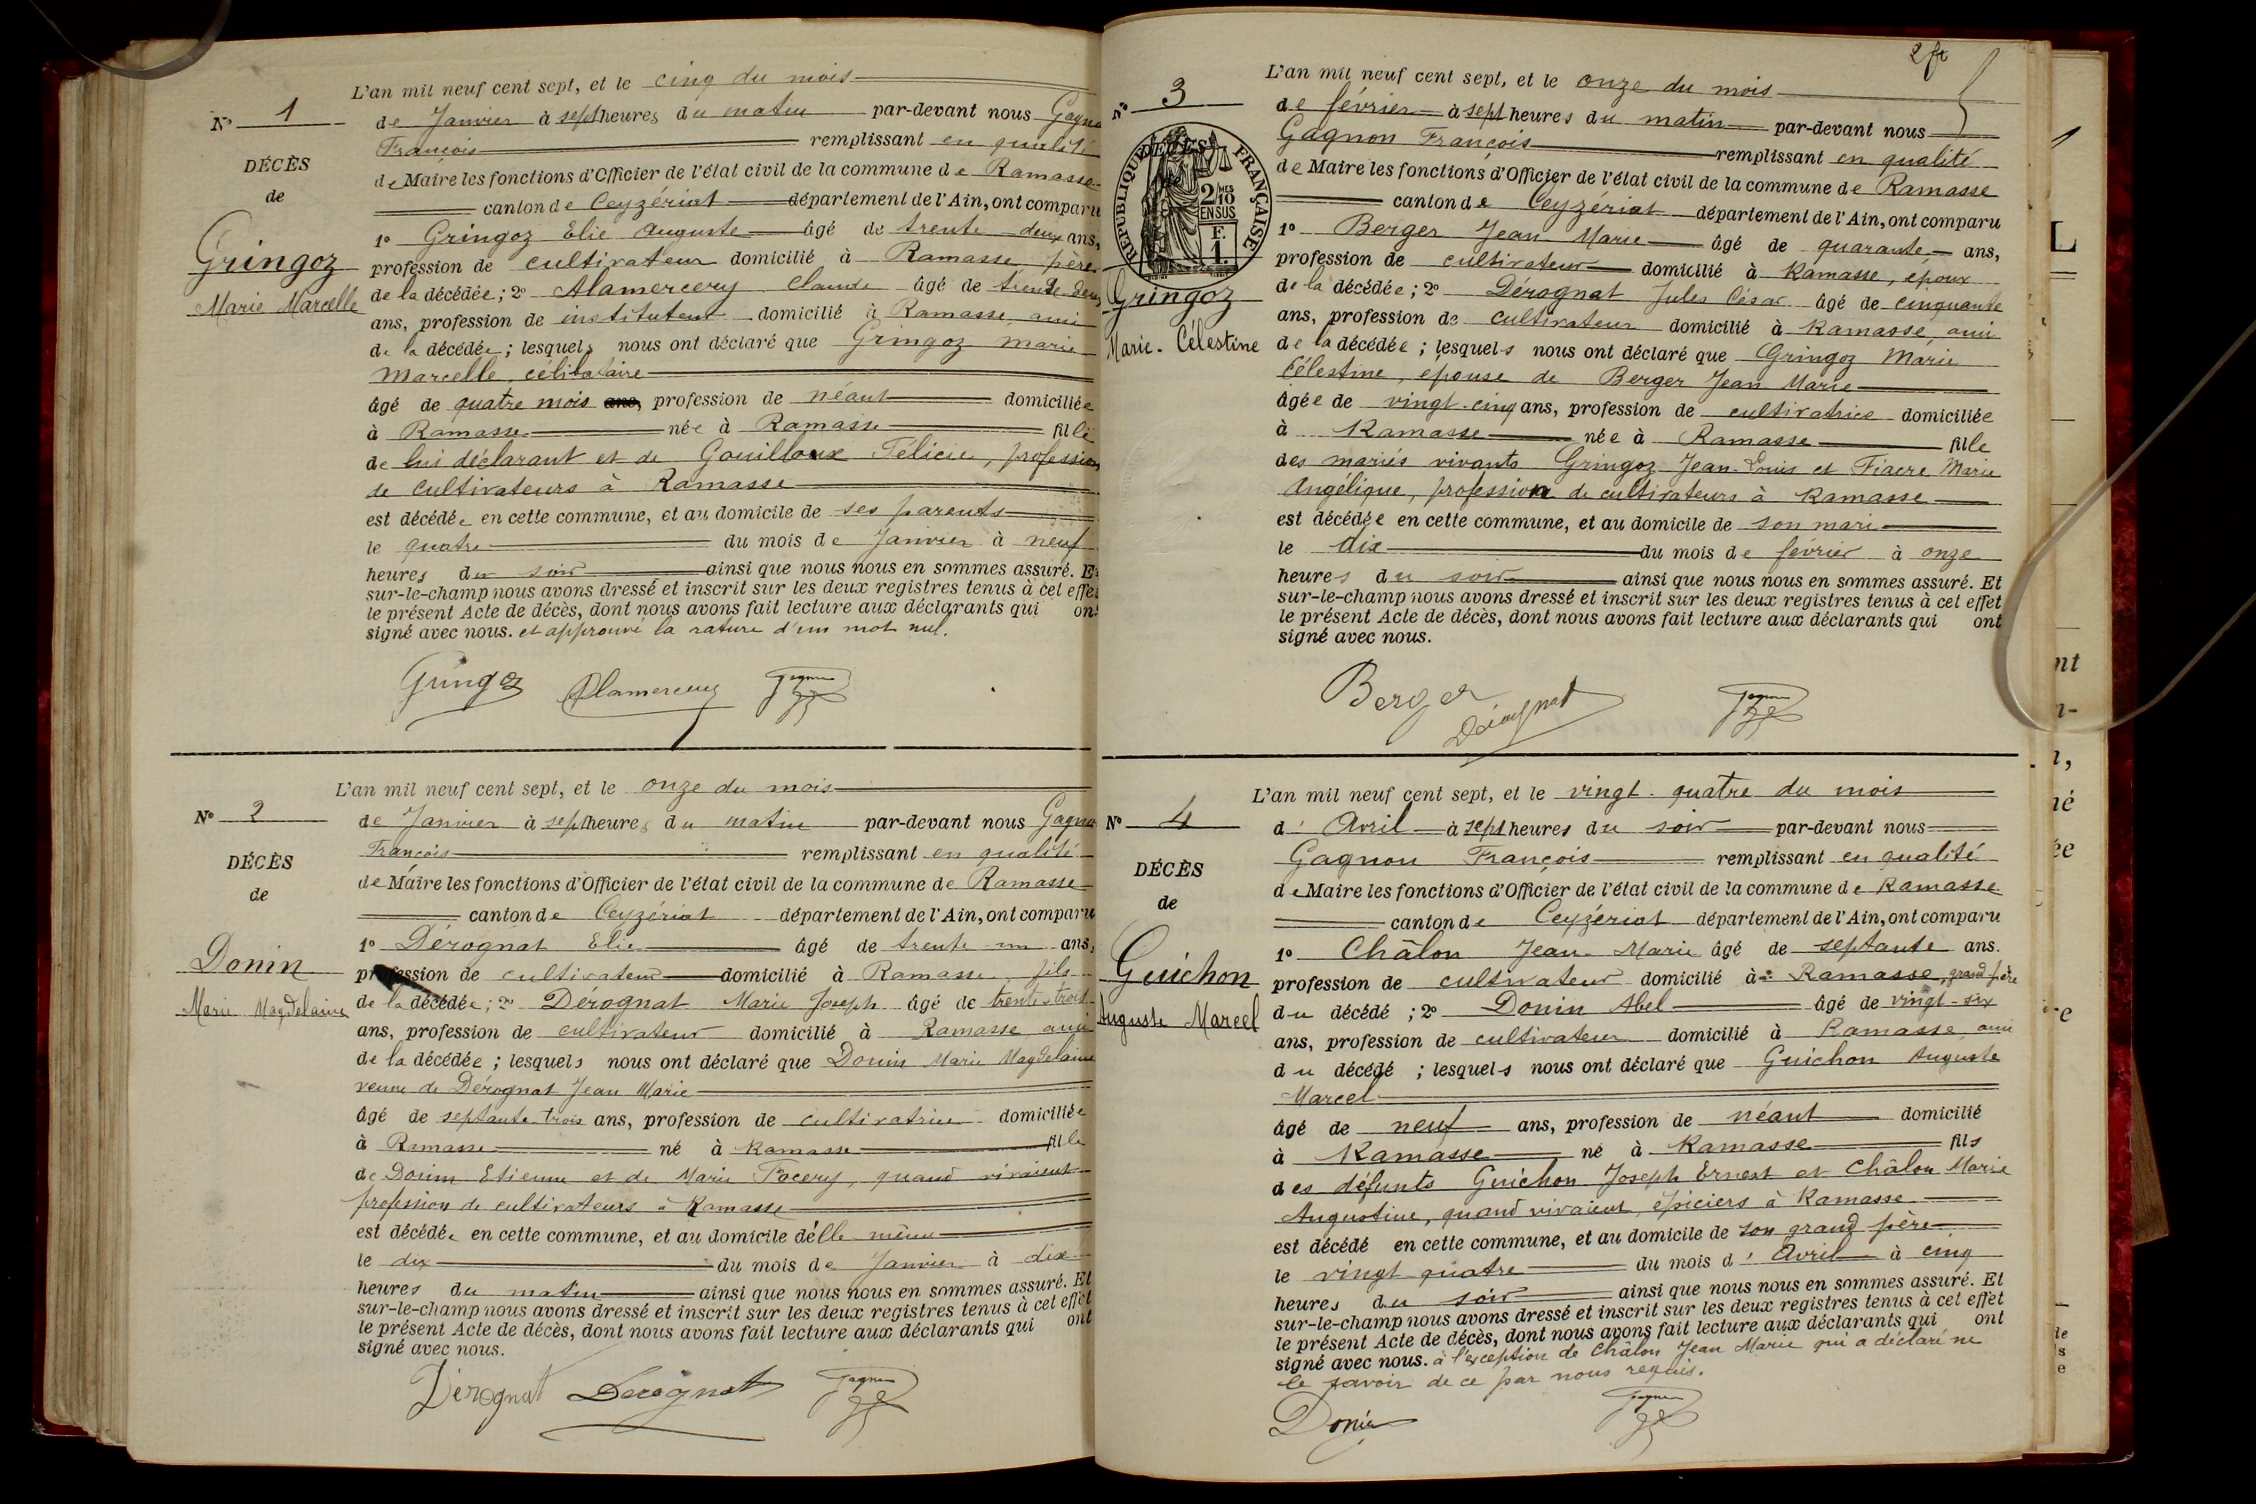 N° 1
DÉCÈS
de
Gringoz
Marie Marcelle
L'an mil neuf cent sept, et le cinq du mois
de Janvier à sept heures du matin par-devant nous
François remplissant en qualité
de Maire les fonctions d'Officier de l'état civil de la commune de Ramasse
canton de Ceyzériat département de l'Ain, ont comparu
1° Gringoz Elie Auguste âgé de trente deux ans,
profession de cultivateur domicilié à Ramasse père
de la décédée; 2° Alamercery Claude âgé de trente deux
ans, profession de instituteur domicilié à Ramasse, ami
de la décédée; lesquels nous ont déclaré que Gringoz Marie
Marcelle, célibataire
âgé de quatre mois ans, profession de néant domiciliée
à Ramasse née à Ramasse fille
de lui déclarant et de Gouilloux Félicie, profession
de cultivateurs à Ramasse
est décédée en cette commune, et au domicile de ses parents
le quatre du mois de Janvier à neuf
heures du soir ainsi que nous nous en sommes assuré. Et
sur-le-champ nous avons dressé et inscrit sur les deux registres tenus à cet effet
le présent Acte de décès, dont nous avons fait lecture aux déclarants qui ont
signé avec nous. et approuvé la rature d'un mot nul.
Gringoz Alamercery Gagnon
N° 2
DÉCÈS
de
Donin
Marie Magdelaine
L'an mil neuf cent sept, et le onze du mois
de Janvier à sept heures du matin par-devant nous
François remplissant en qualité
de Maire les fonctions d'Officier de l'état civil de la commune de Ramasse
canton de Ceyzériat département de l'Ain, ont comparu
1° Dérognat Elie âgé de trente un ans,
profession de cultivateur domicilié à Ramasse, fils
de la décédée; 2° Dérognat Marie Joseph âgé de trente trois
ans, profession de cultivateur domicilié à Ramasse, ami
de la décédée; lesquels nous ont déclaré que Donin Marie Magdelaine
veuve de Dérognat Jean Marie
âgé de septante trois ans, profession de cultivatrice domiciliée
à Ramasse né à Ramasse fille
de Donin Etienne et de Marie, quand vivaient
profession de cultivateurs à Ramasse
est décédée en cette commune, et au domicile d'elle même
le dix du mois de Janvier à dix
heures du matin ainsi que nous nous en sommes assuré. Et
sur-le-champ nous avons dressé et inscrit sur les deux registres tenus à cet effet
le présent Acte de décès, dont nous avons fait lecture aux déclarants qui ont
signé avec nous.
Dérognat Derognat Gagnon
N° 3
RÉPUBLIQUE FRANÇAISE
2/10 EN SUS
F. 1.
Gringoz
Marie-Célestine
L'an mil neuf cent sept, et le onze du mois
de février à sept heures du matin par-devant nous
Gagnon François remplissant en qualité
de Maire les fonctions d'Officier de l'état civil de la commune de Ramasse
canton de Ceyzériat département de l'Ain, ont comparu
1° Berger Jean Marie âgé de quarante ans,
profession de cultivateur domicilié à Ramasse, époux
de la décédée; 2° Dérognat Jules César âgé de cinquante
ans, profession de cultivateur domicilié à Ramasse, ami
de la décédée; lesquels nous ont déclaré que Gringoz Marie
Célestine, épouse de Berger Jean Marie
âgée de vingt-cinq ans, profession de cultivatrice domiciliée
à Ramasse née à Ramasse fille
des mariés vivants Gringoz Jean-Louis et Fiacre Marie
Angélique, profession de cultivateurs à Ramasse
est décédée en cette commune, et au domicile de son mari
le dix du mois de février à onze
heures du soir ainsi que nous nous en sommes assuré. Et
sur-le-champ nous avons dressé et inscrit sur les deux registres tenus à cet effet
le présent Acte de décès, dont nous avons fait lecture aux déclarants qui ont
signé avec nous.
Berger Dérognat Gagnon
N° 4
DÉCÈS
de
Guichon
Auguste Marcel
L'an mil neuf cent sept, et le vingt-quatre du mois
d'Avril à sept heures du soir par-devant nous
Gagnon François remplissant en qualité
de Maire les fonctions d'Officier de l'état civil de la commune de Ramasse
canton de Ceyzériat département de l'Ain, ont comparu
1° Châlon Jean-Marie âgé de septante ans.
profession de cultivateur domicilié à Ramasse, grand père
du décédé; 2° Donin Abel âgé de vingt-six
ans, profession de cultivateur domicilié à Ramasse, ami
du décédé; lesquels nous ont déclaré que Guichon Auguste
Marcel
âgé de neuf ans, profession de néant domicilié
à Ramasse né à Ramasse fils
des défunts Guichon Joseph Ernest et Châlon Marie
Augustine, quand vivaient, épiciers à Ramasse
est décédé en cette commune, et au domicile de son grand père
le vingt quatre du mois d'Avril à cinq
heures du soir ainsi que nous nous en sommes assuré. Et
sur-le-champ nous avons dressé et inscrit sur les deux registres tenus à cet effet
le présent Acte de décès, dont nous avons fait lecture aux déclarants qui ont
signé avec nous. à l'exception de Châlon Jean Marie qui a déclaré ne
le savoir de ce par nous requis.
Donin Gagnon